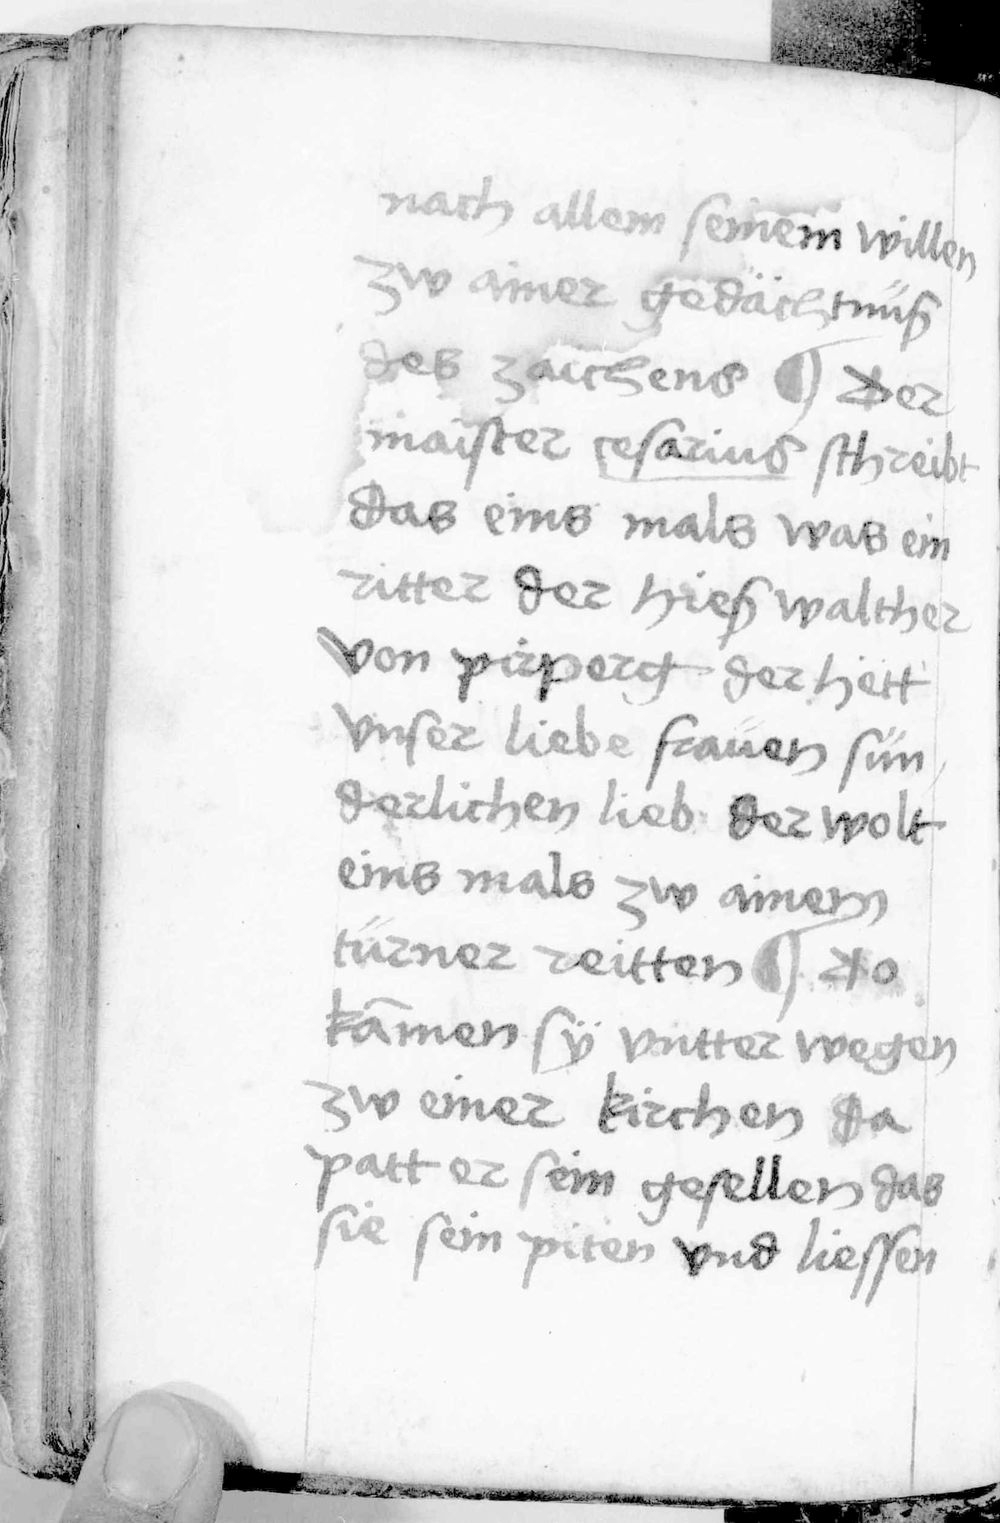 nach allem seinem willen
zw ainer gedächtnüß
des zaichens ¶ Der
maister cesarius schreibt
das eins mals was ein
ritter der hieß walther
von pirperg der hett
vnser liebe frauen sün
derlichen lieb der wolt
eins mals zw ainem
türner reitten ¶ Do
kāmen sÿ vntter wegen
zw einer kirchen da
patt er sein gesellen das
sie sein piten vnd liessen